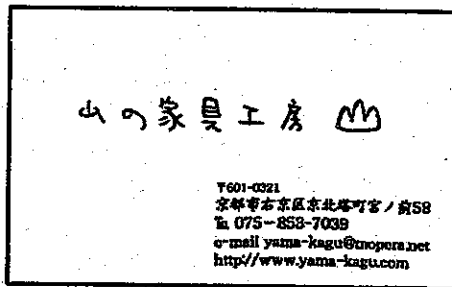 山の家具工房
〒601-0321
京都市右京区京北塔町宮ノ前58
℡ 075-853-7039
e-mail yama-kagu@mopera.net
http://www.yama-kagu.com